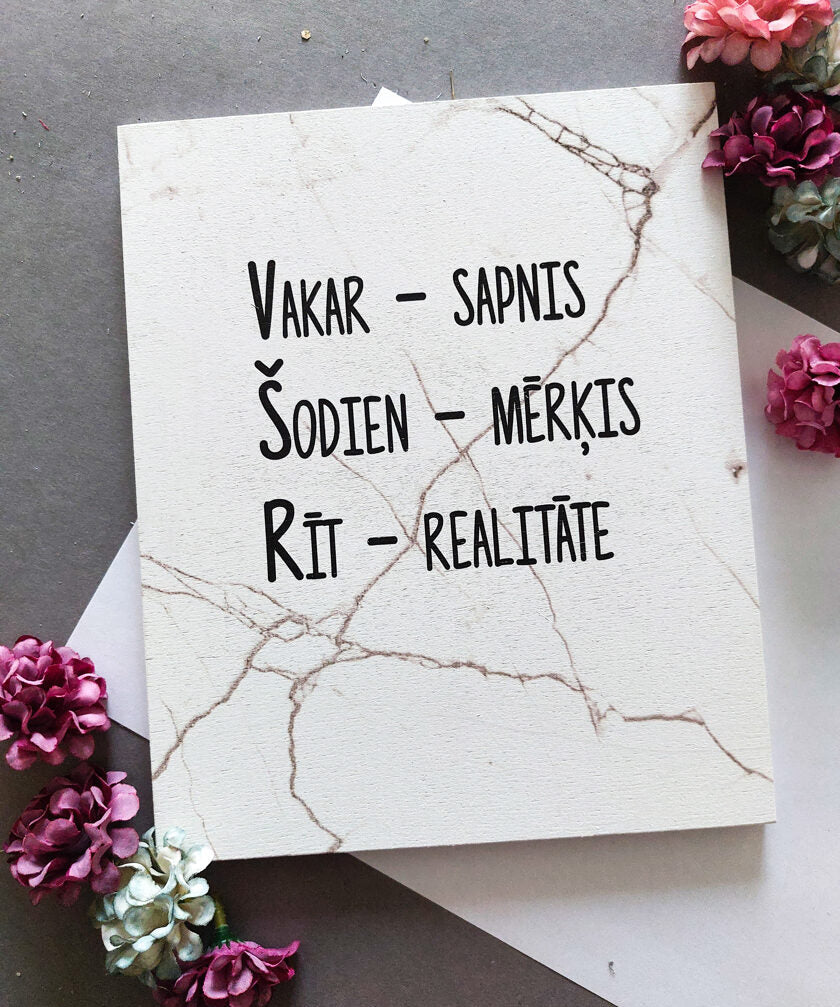 Vakar – sapnis
Šodien – mērķis
Rīt – realitāte